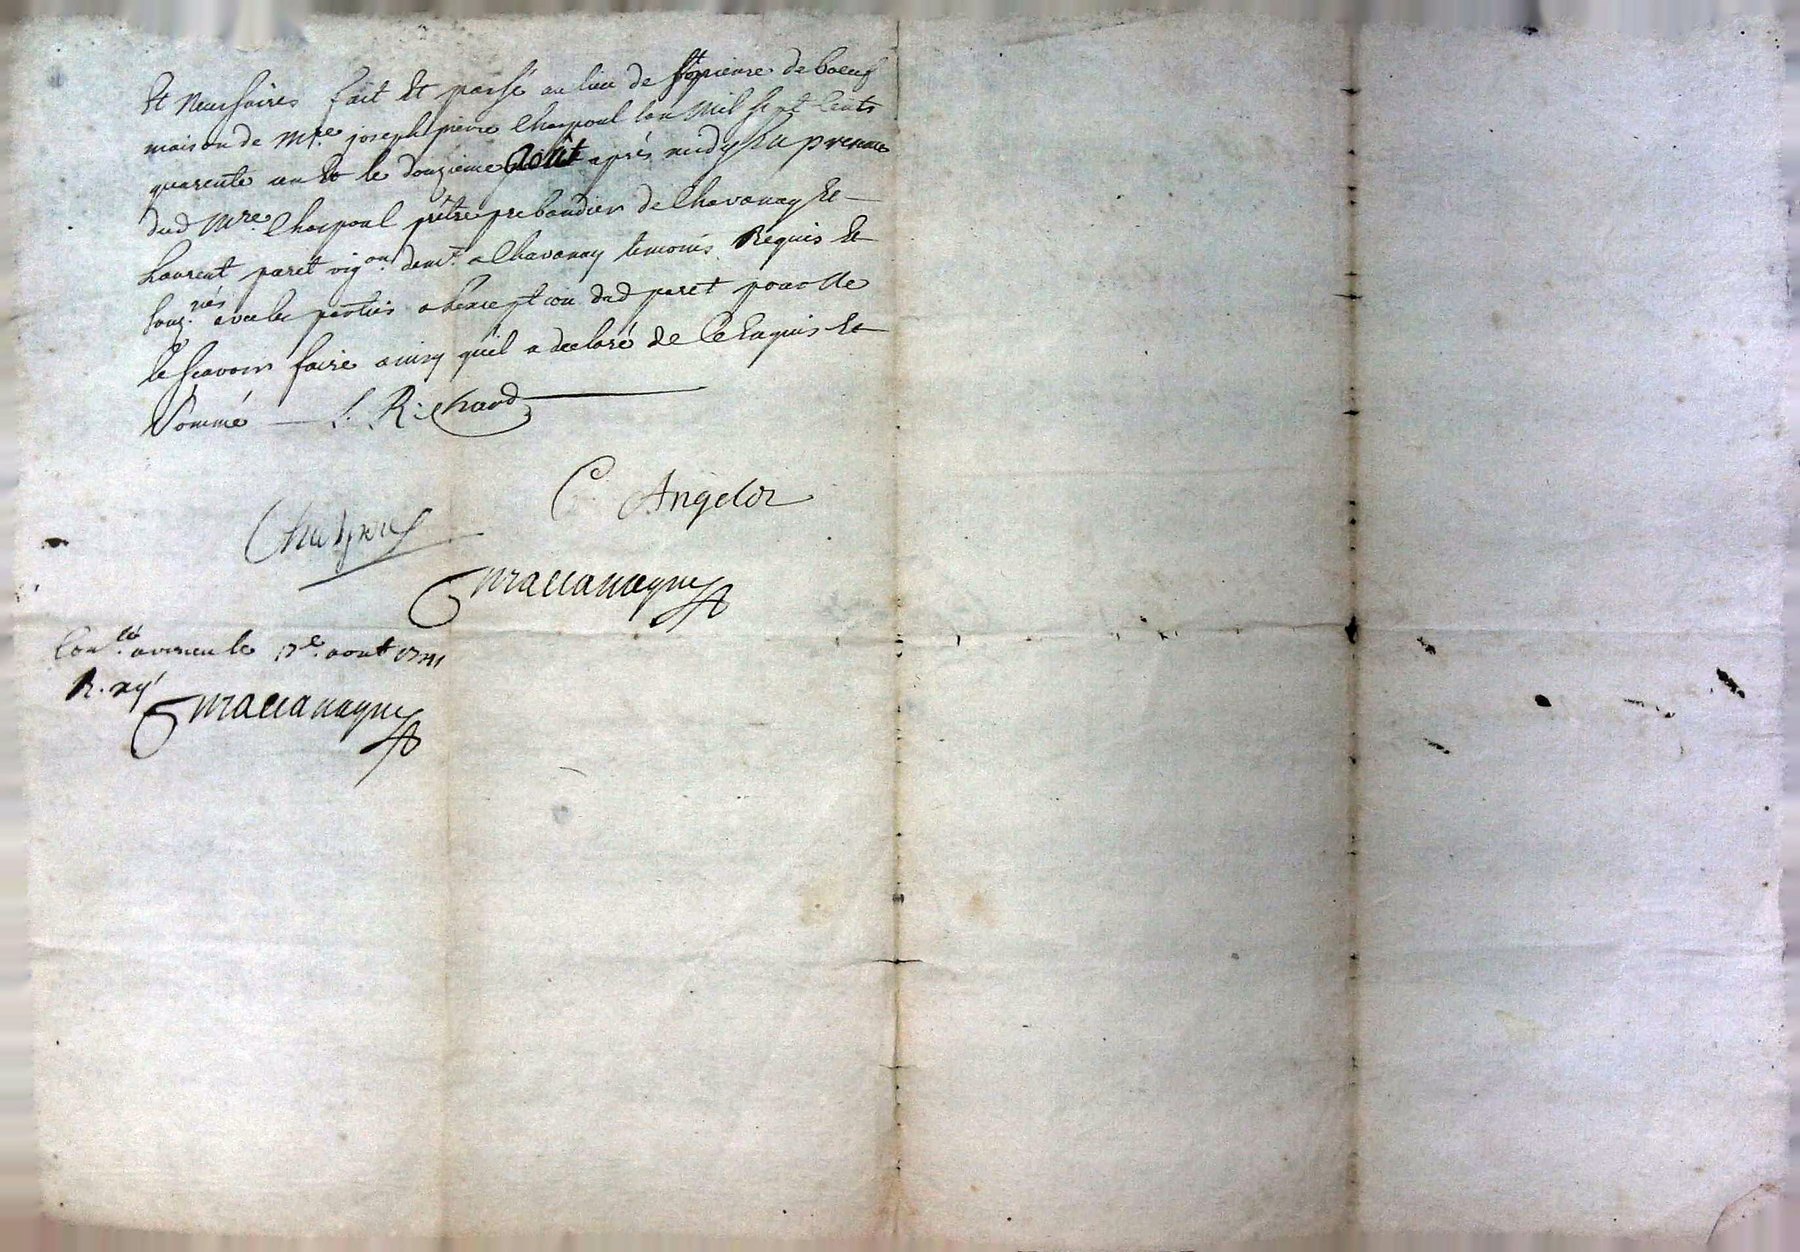 Et necessaires fait Et passé au lieu de St pierre de boeuf
maison de Mre. joseph pierre Chaspoul lan Mil sept Cents
quarente un Et le douzieme Aoûst aprés midy En presance
dud Mre. Chaspoul prêtre prebandier de Chavanay Et
Laurent paret vigon. demt. a Chavanay temoins Requis Et
souz.nés avec les parties a lexception dud paret pour Ne
le scavoir faire ainsy quil a declaré de Ce Enquis Et
Sommé L. Richard
C Angelot
Maccanagny
Conlé. a virieu le 17e. aout 1741
R. xijs
Maccanagny